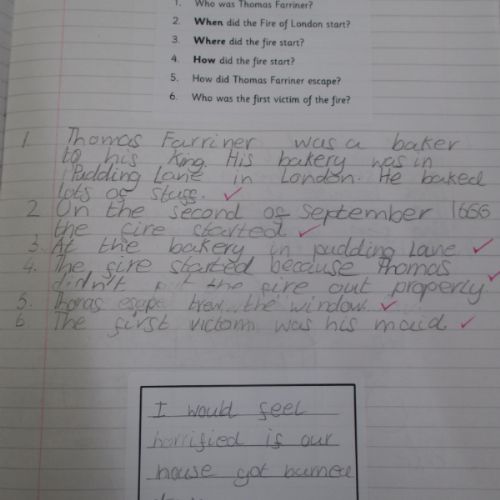 1. Who was Thomas Farriner?
2. When did the Fire of London start?
3. Where did the fire start?
4. How did the fire start?
5. How did Thomas Farriner escape?
6. Who was the first victim of the fire?
1 Thomas Farriner was a baker
to his King. His bakery was in
Pudding Lane in London. He baked
lots of stuff.
2 On the second of September 1666
the fire started
3. At the bakery in pudding lane
4. The fire started because Thomas
didn't put the fire out properly
5. Thomas escape trew the window.
6 The first victom was his maid
I would feel
horrified if our
house got burned